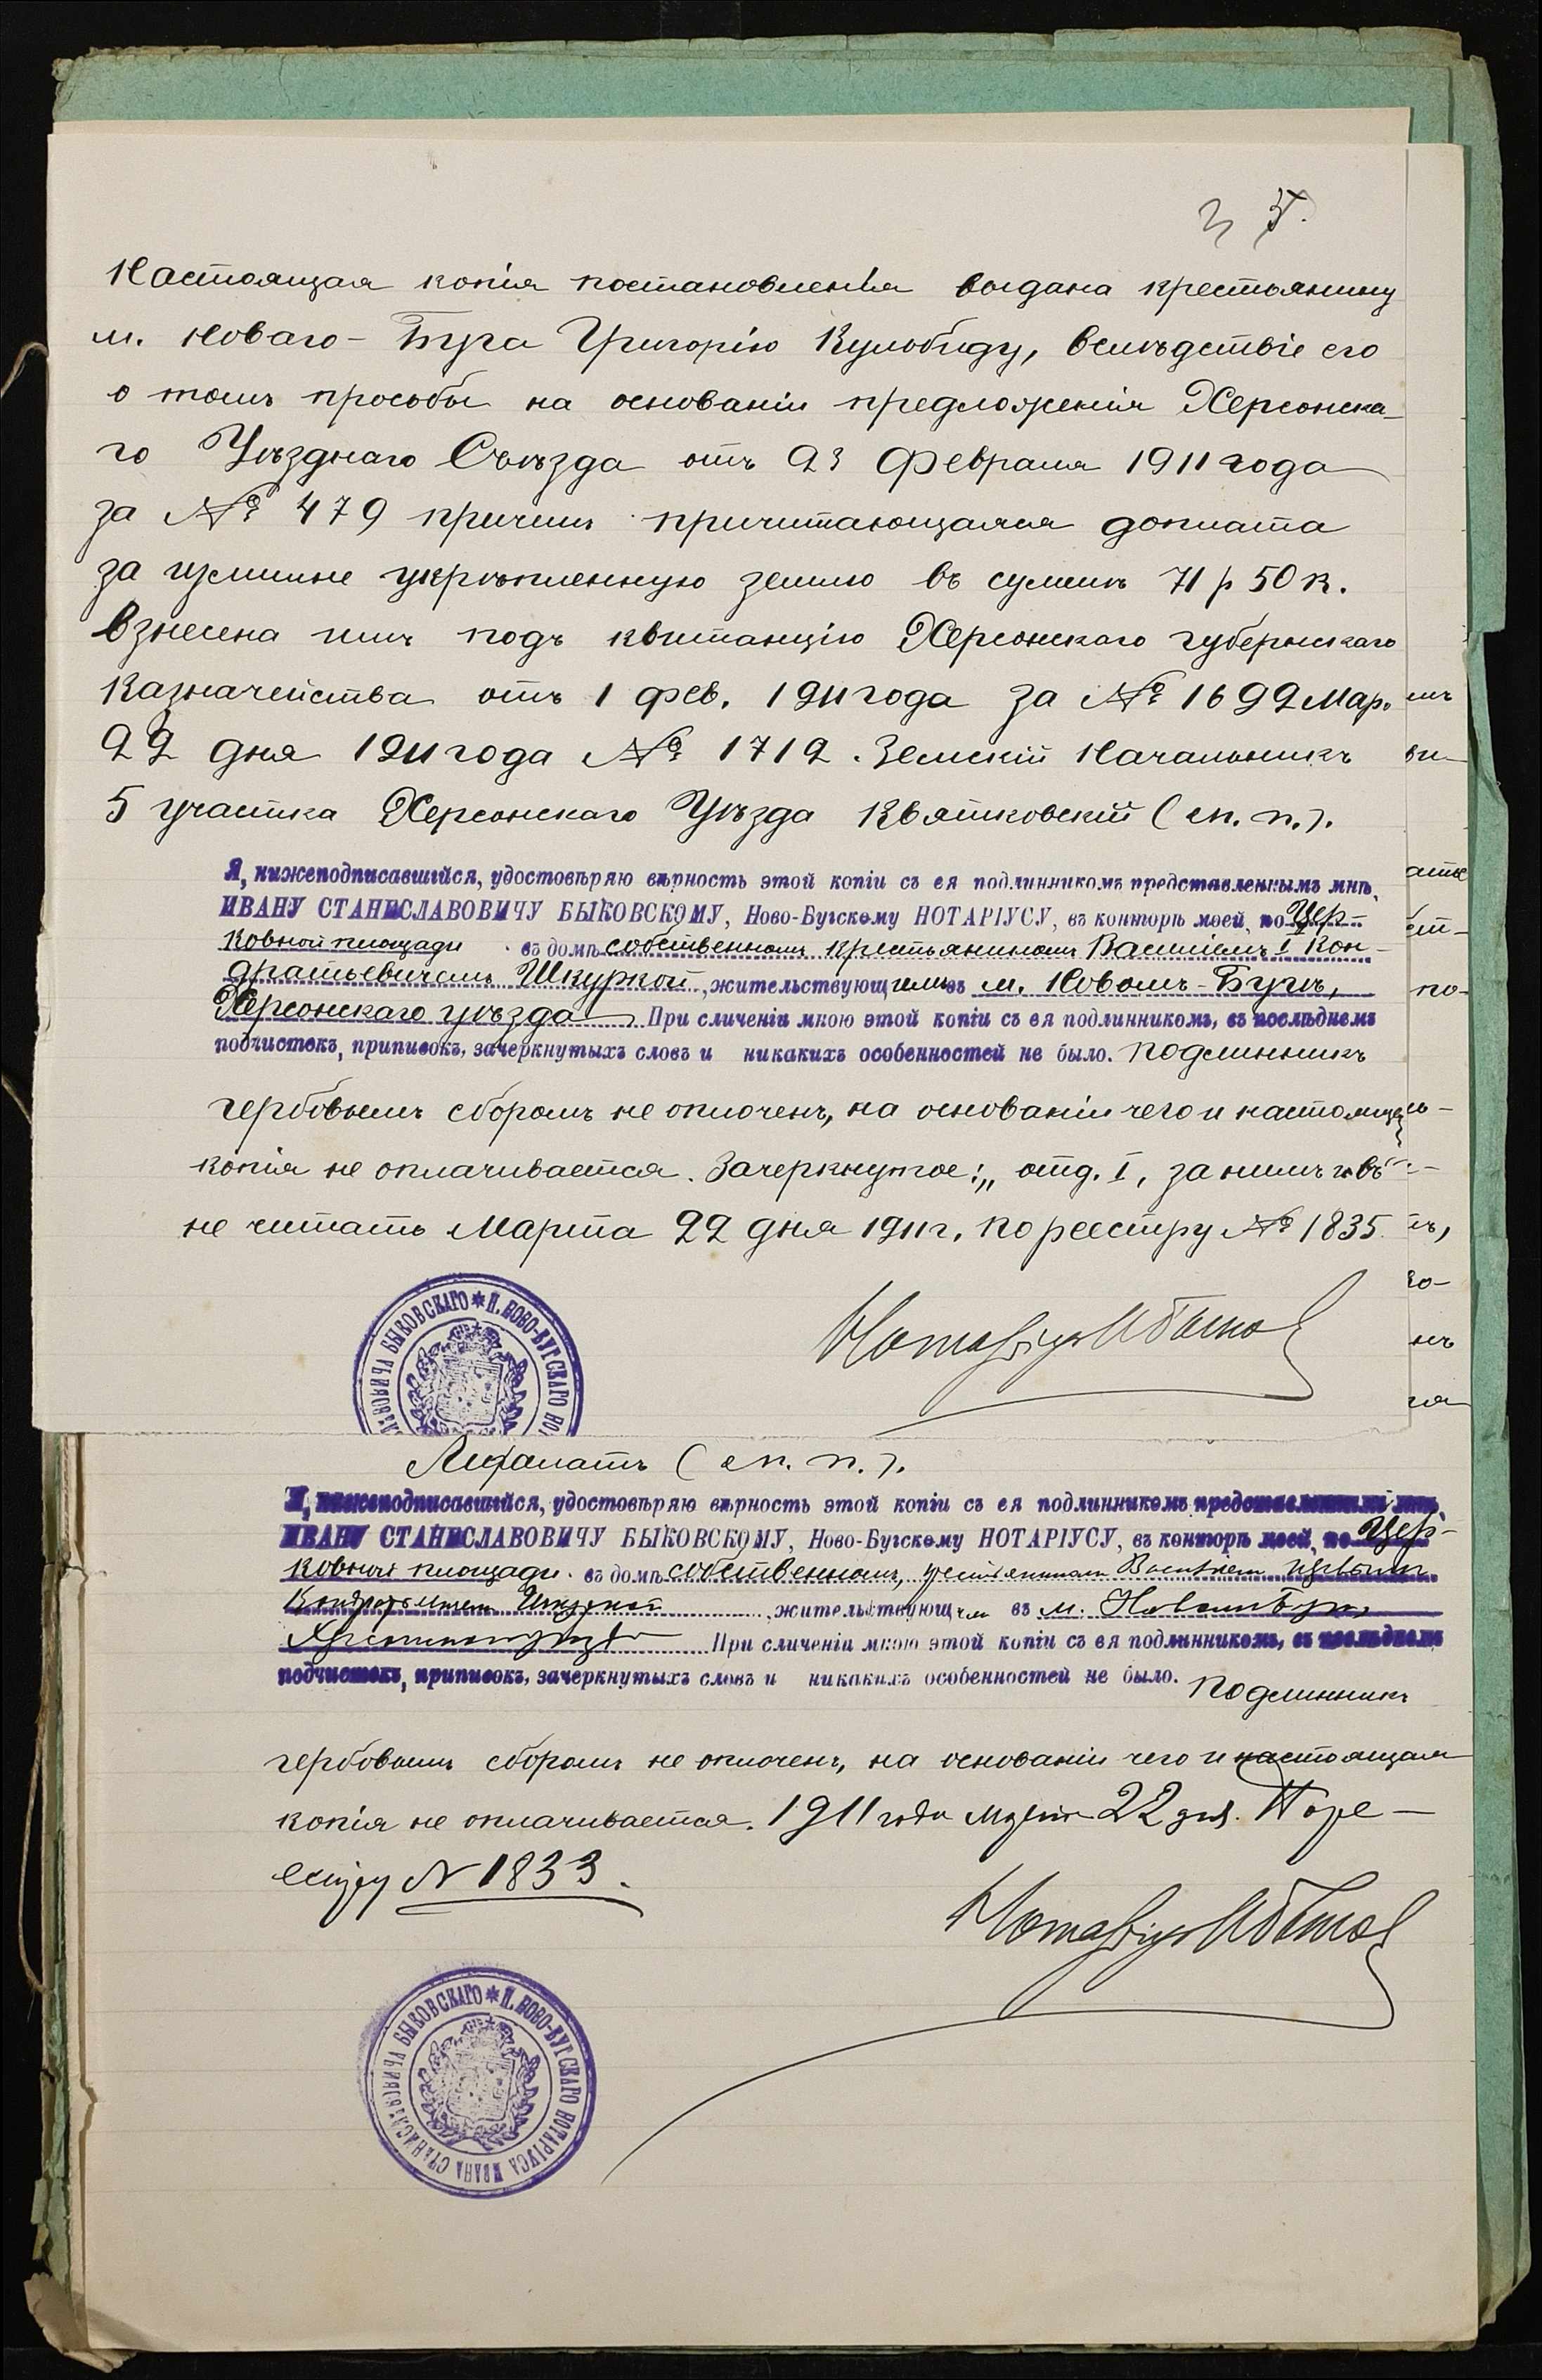 3 5.
Настоящая копія постановленія выдана крестьянину
м. Новаго-Буга Григорію Кулобиду, вслѣдствіе его
о томъ просьбы на основаніи предложенія Херсонска-
го Уѣзднаго Съѣзда отъ 23 Февраля 1911 года
за № 479 причемъ причитающаяся доплата
за излишне укрѣпленную землю въ суммѣ 71 р 50 к.
взнесена имъ подъ квитанцію Херсонскаго губернскаго
Казначейства отъ 1 фев. 1911 года за № 1692 Мар.
22 дня 1911 года № 1712. Земскій Начальникъ
5 участка Херсонскаго Уѣзда Квятковскій (сп. п.).
Я, нижеподписавшійся, удостовѣряю вѣрность этой копіи съ ея подлинникомъ представленнымъ мнѣ,
ИВАНУ СТАНИСЛАВОВИЧУ БЫКОВСКОМУ, Ново-Бугскому НОТАРІУСУ, въ конторѣ моей, по Цер-
ковной площади въ домѣ собственномъ крестьяниномъ Василіемъ I Кон-
дратьевичемъ Шкуркой, жительствующимъ въ м. Новомъ-Бугѣ,
Херсонскаго уѣзда При сличеніи мною этой копіи съ ея подлинникомъ, въ послѣднемъ
подчистокъ, приписокъ, зачеркнутыхъ словъ и никакихъ особенностей не было. Подлинникъ
гербовымъ сборомъ не оплоченъ, на основаніи чего и настоящая
копія не оплачивается. Зачеркнутое: „отд. I, за нимъ и въ"
не читать Марта 22 дня 1911 г. По реестру № 1835.
Нотаріусъ И Быков
* П. НОВО-БУГСКАГО НОТ ЛАВОВИЧА БЫКОВСКАГО
мъ
ви-
по-
го-
нъ
(сп. п.).
Я, нижеподписавшійся, удостовѣряю вѣрность этой копіи съ ея подлинникомъ представленнымъ мнѣ,
ИВАНУ СТАНИСЛАВОВИЧУ БЫКОВСКОМУ, Ново-Бугскому НОТАРІУСУ, въ конторѣ моей, по Цер-
ковной площади въ домѣ собственномъ, крестьяниномъ Василіемъ первымъ
Кондратьевичемъ Шкуркой, жительствующимъ въ м. Новомъ Бугѣ,
Херсонскаго уѣзда При сличеніи мною этой копіи съ ея подлинникомъ, въ послѣднемъ
подчистокъ, приписокъ, зачеркнутыхъ словъ и никакихъ особенностей не было. Подлинникъ
гербовымъ сборомъ не оплоченъ, на основаніи чего и настоящая
копія не оплачивается. 1911 года Марта 22 дня. По ре-
естру № 1833.
Нотаріусъ И Быков
* П. НОВО-БУГСКАГО НОТАРІУСА ИВАНА СТАНИСЛАВОВИЧА БЫКОВСКАГО